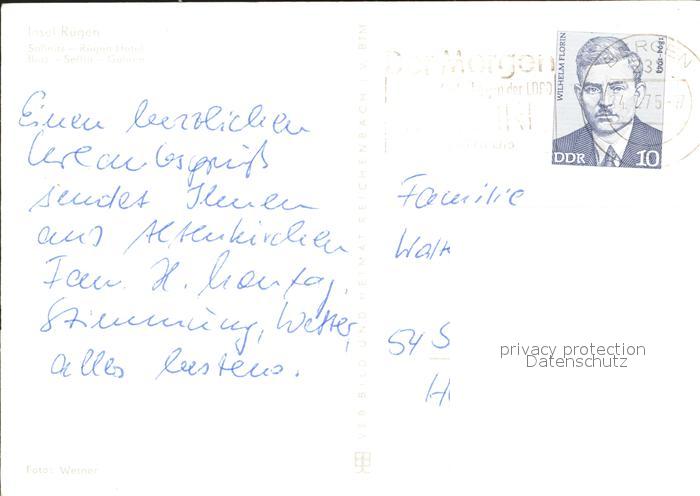 Insel Rügen
Saßnitz – Rügen-Hotel
Binz – Sellin – Göhren
Einen herzlichen
Urlaubsgruß
sendet Ihnen
aus Altenkirchen
Fam. H. Montag.
Stimmung, Wetter,
alles bestens.
Foto: Werner
VEB BILD UND HEIMAT REICHENBACH BTM
Der Morgen
der LDPD
BERGEN
WILHELM FLORIN
1894-1943
DDR 10
Familie
Walt
54 S
H
privacy protection
Datenschutz